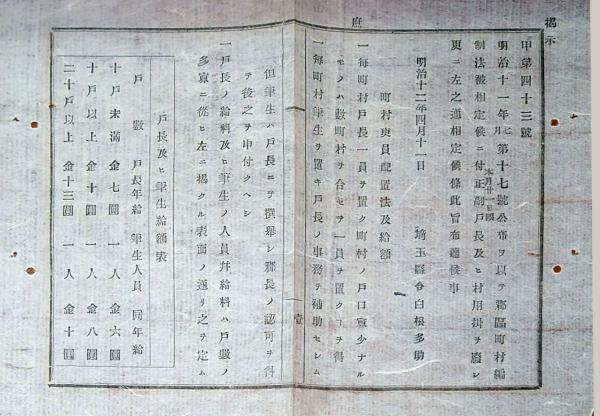 揭示
甲第四十三號
明治十一年七月第十七號公布ヲ以テ郡區町村編
制法被相定候ニ付正副戶長及ヒ村用掛ヲ廢シ
更ニ左之通相定候條此旨布達候事
明治十二年四月十一日
埼玉縣令白根多助
町村吏員配置法及給額
一每町村戶長一員ヲ置ク町村ノ戶口寡少ナル
モノハ數町村ヲ合セヲ一員ヲ置クヿヲ得
一每町村筆生ヲ置キ戶長ノ事務ヲ補助セシム
庶
壹
但筆生ハ戶長ニテ撰擧シ郡長ノ認可ヲ得
テ後之ヲ申付クヘシ
一戶長ノ給料及ヒ筆生ノ人員幷給料ハ戶數ノ
多寡ニ從ヒ左ニ揭クル表面ノ通リ之ヲ定ム
戶長及ヒ筆生給額表
戶數 戶長年給 筆生人員 同年給
十戶未滿 金七圓 一人 金六圓
十戶以上 金十圓 一人 金八圓
二十戶以上 金十三圓 一人 金十圓